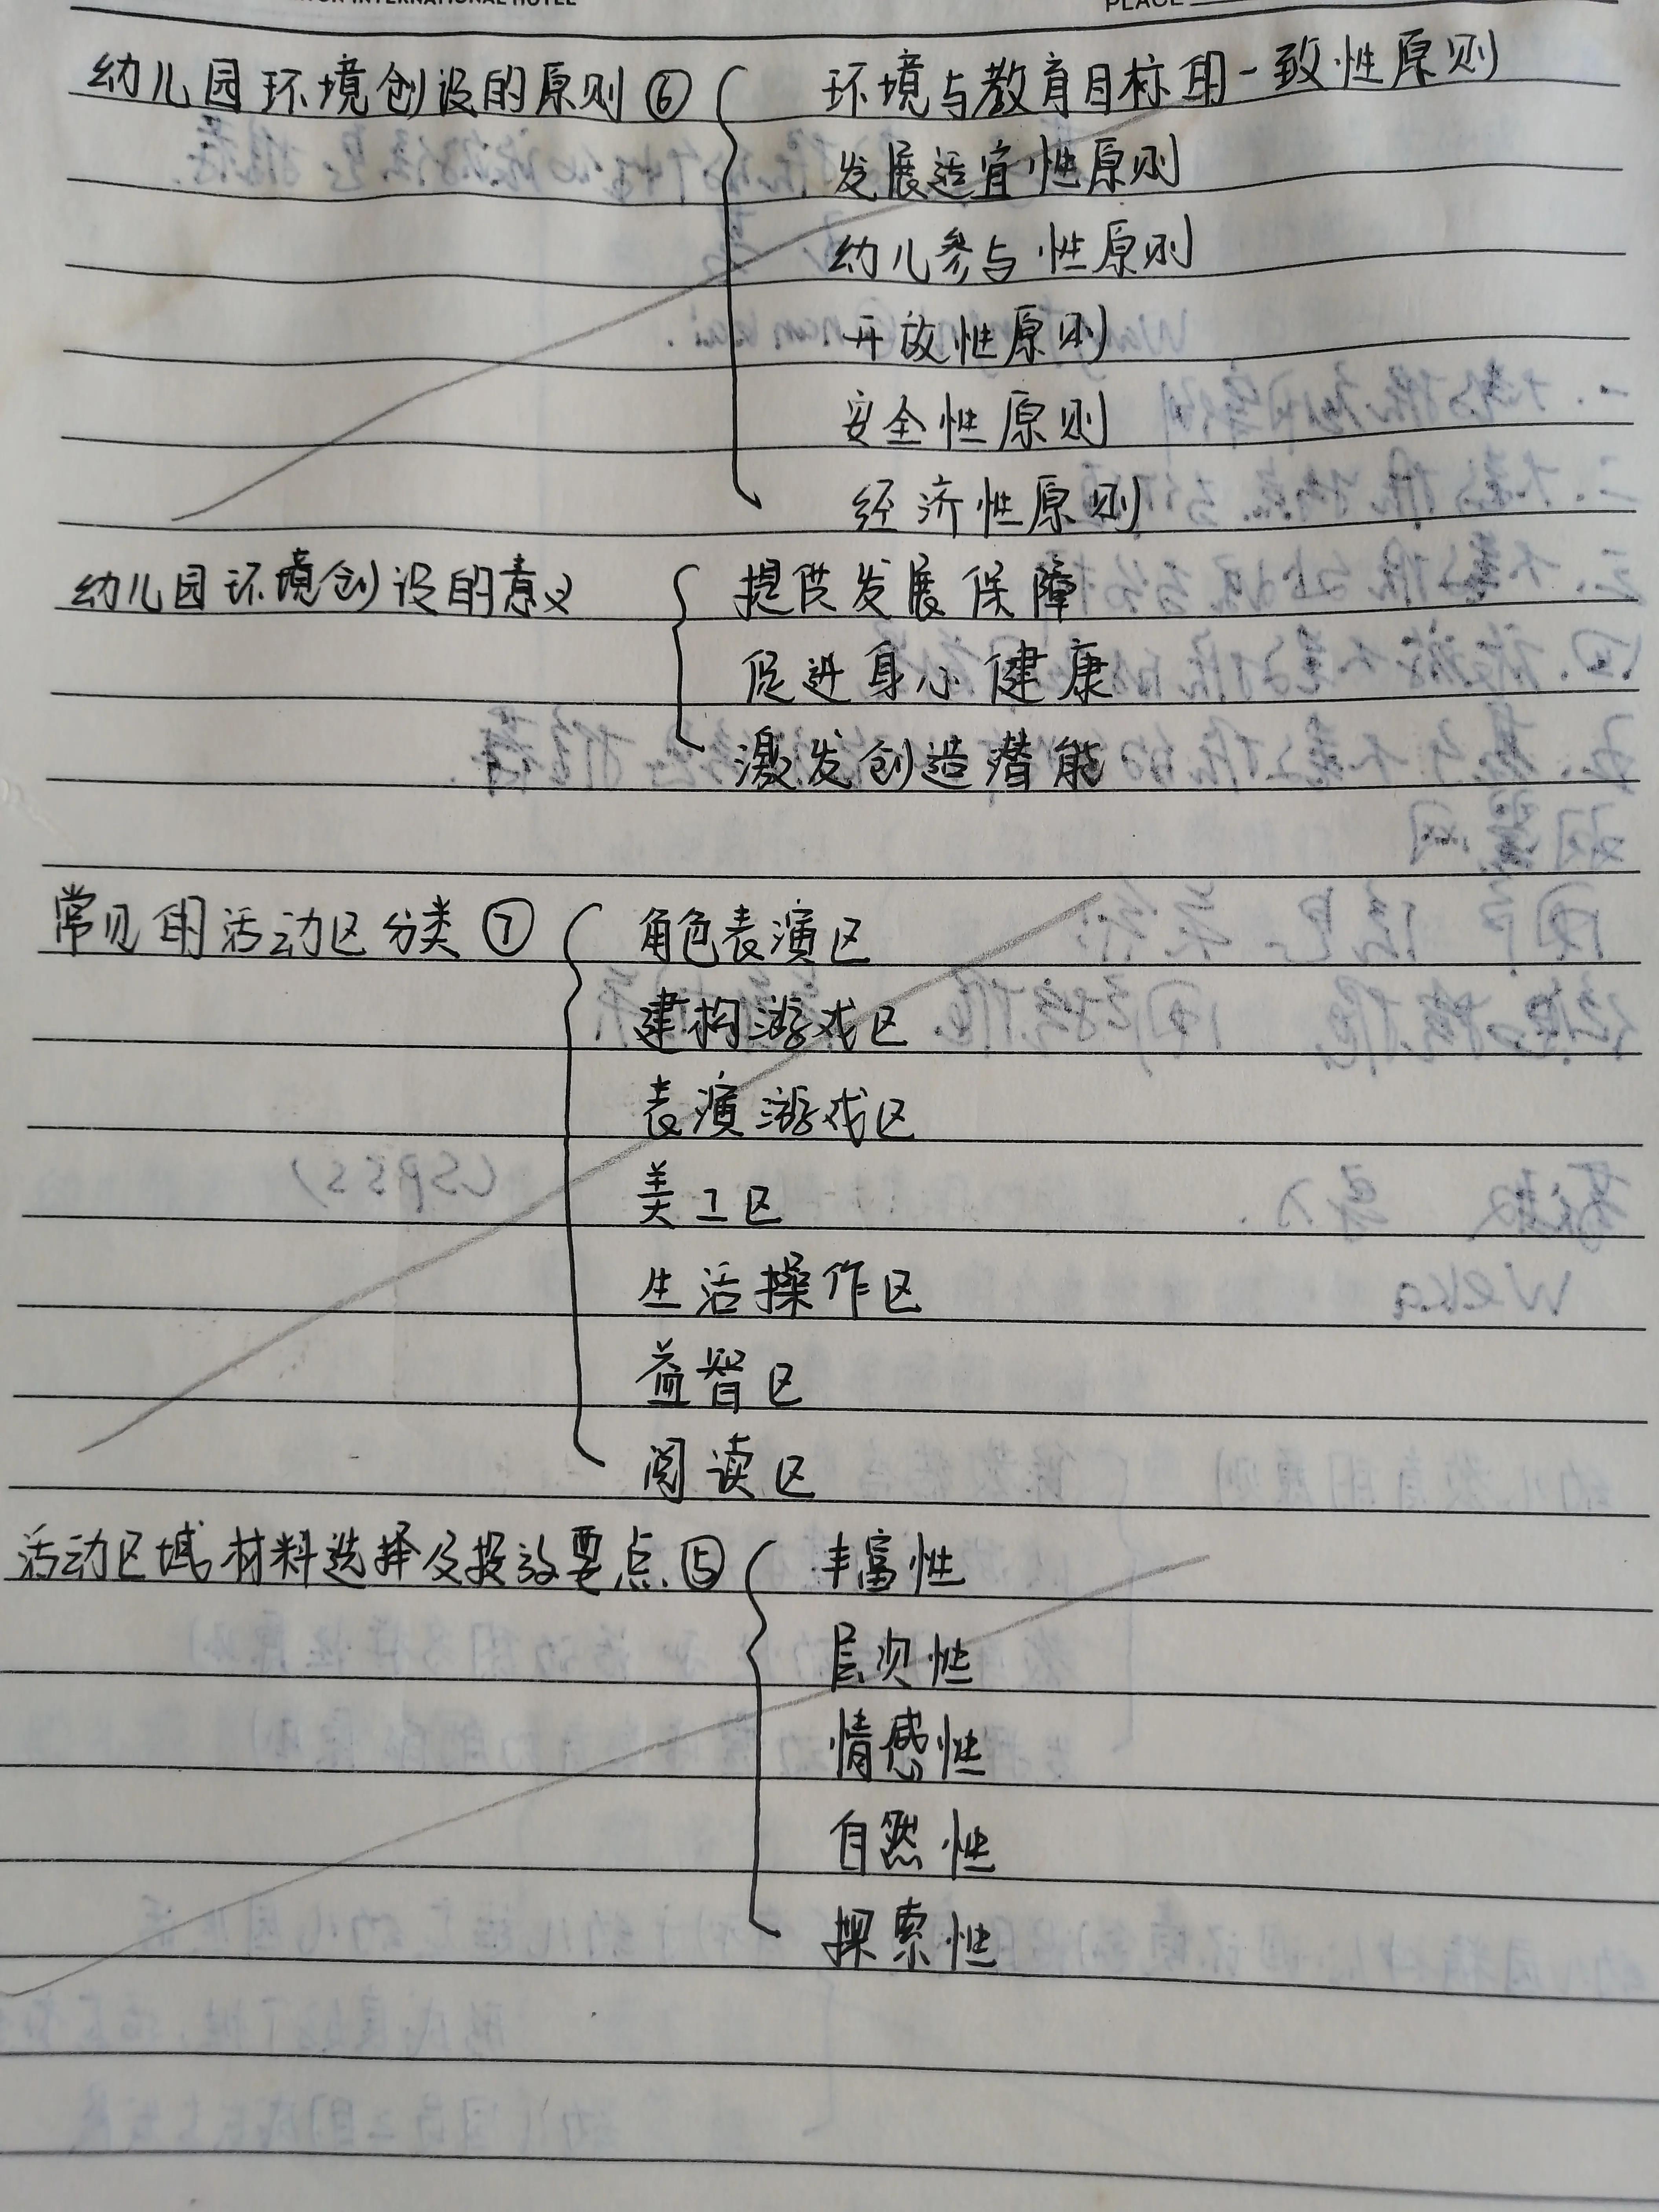 INTERNATIONAL HOTEL PLACE
幼儿园环境创设的原则⑥ 环境与教育目标的一致性原则
发展适宜性原则
幼儿参与性原则
开放性原则
安全性原则
经济性原则
幼儿园环境创设的意义 提供发展保障
促进身心健康
激发创造潜能
常见的活动区分类⑦ 角色表演区
建构游戏区
表演游戏区
美工区
生活操作区
益智区
阅读区
活动区域材料选择及投放要点⑤ 丰富性
层次性
情感性
自然性
探索性